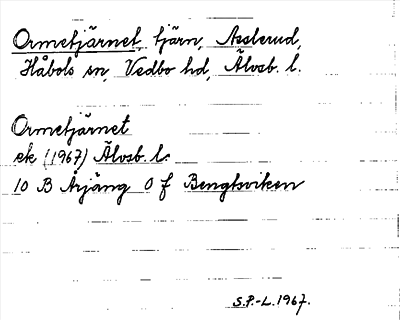 Ormetjärnet, tjärn, Asslerud,
Håbols sn, Vedbo hd, Älvsb. l.
Ormetjärnet
ek (1967) Älvsb. l.
10 B Årjäng 0 f Bengtsviken
S.P.-L. 1967.